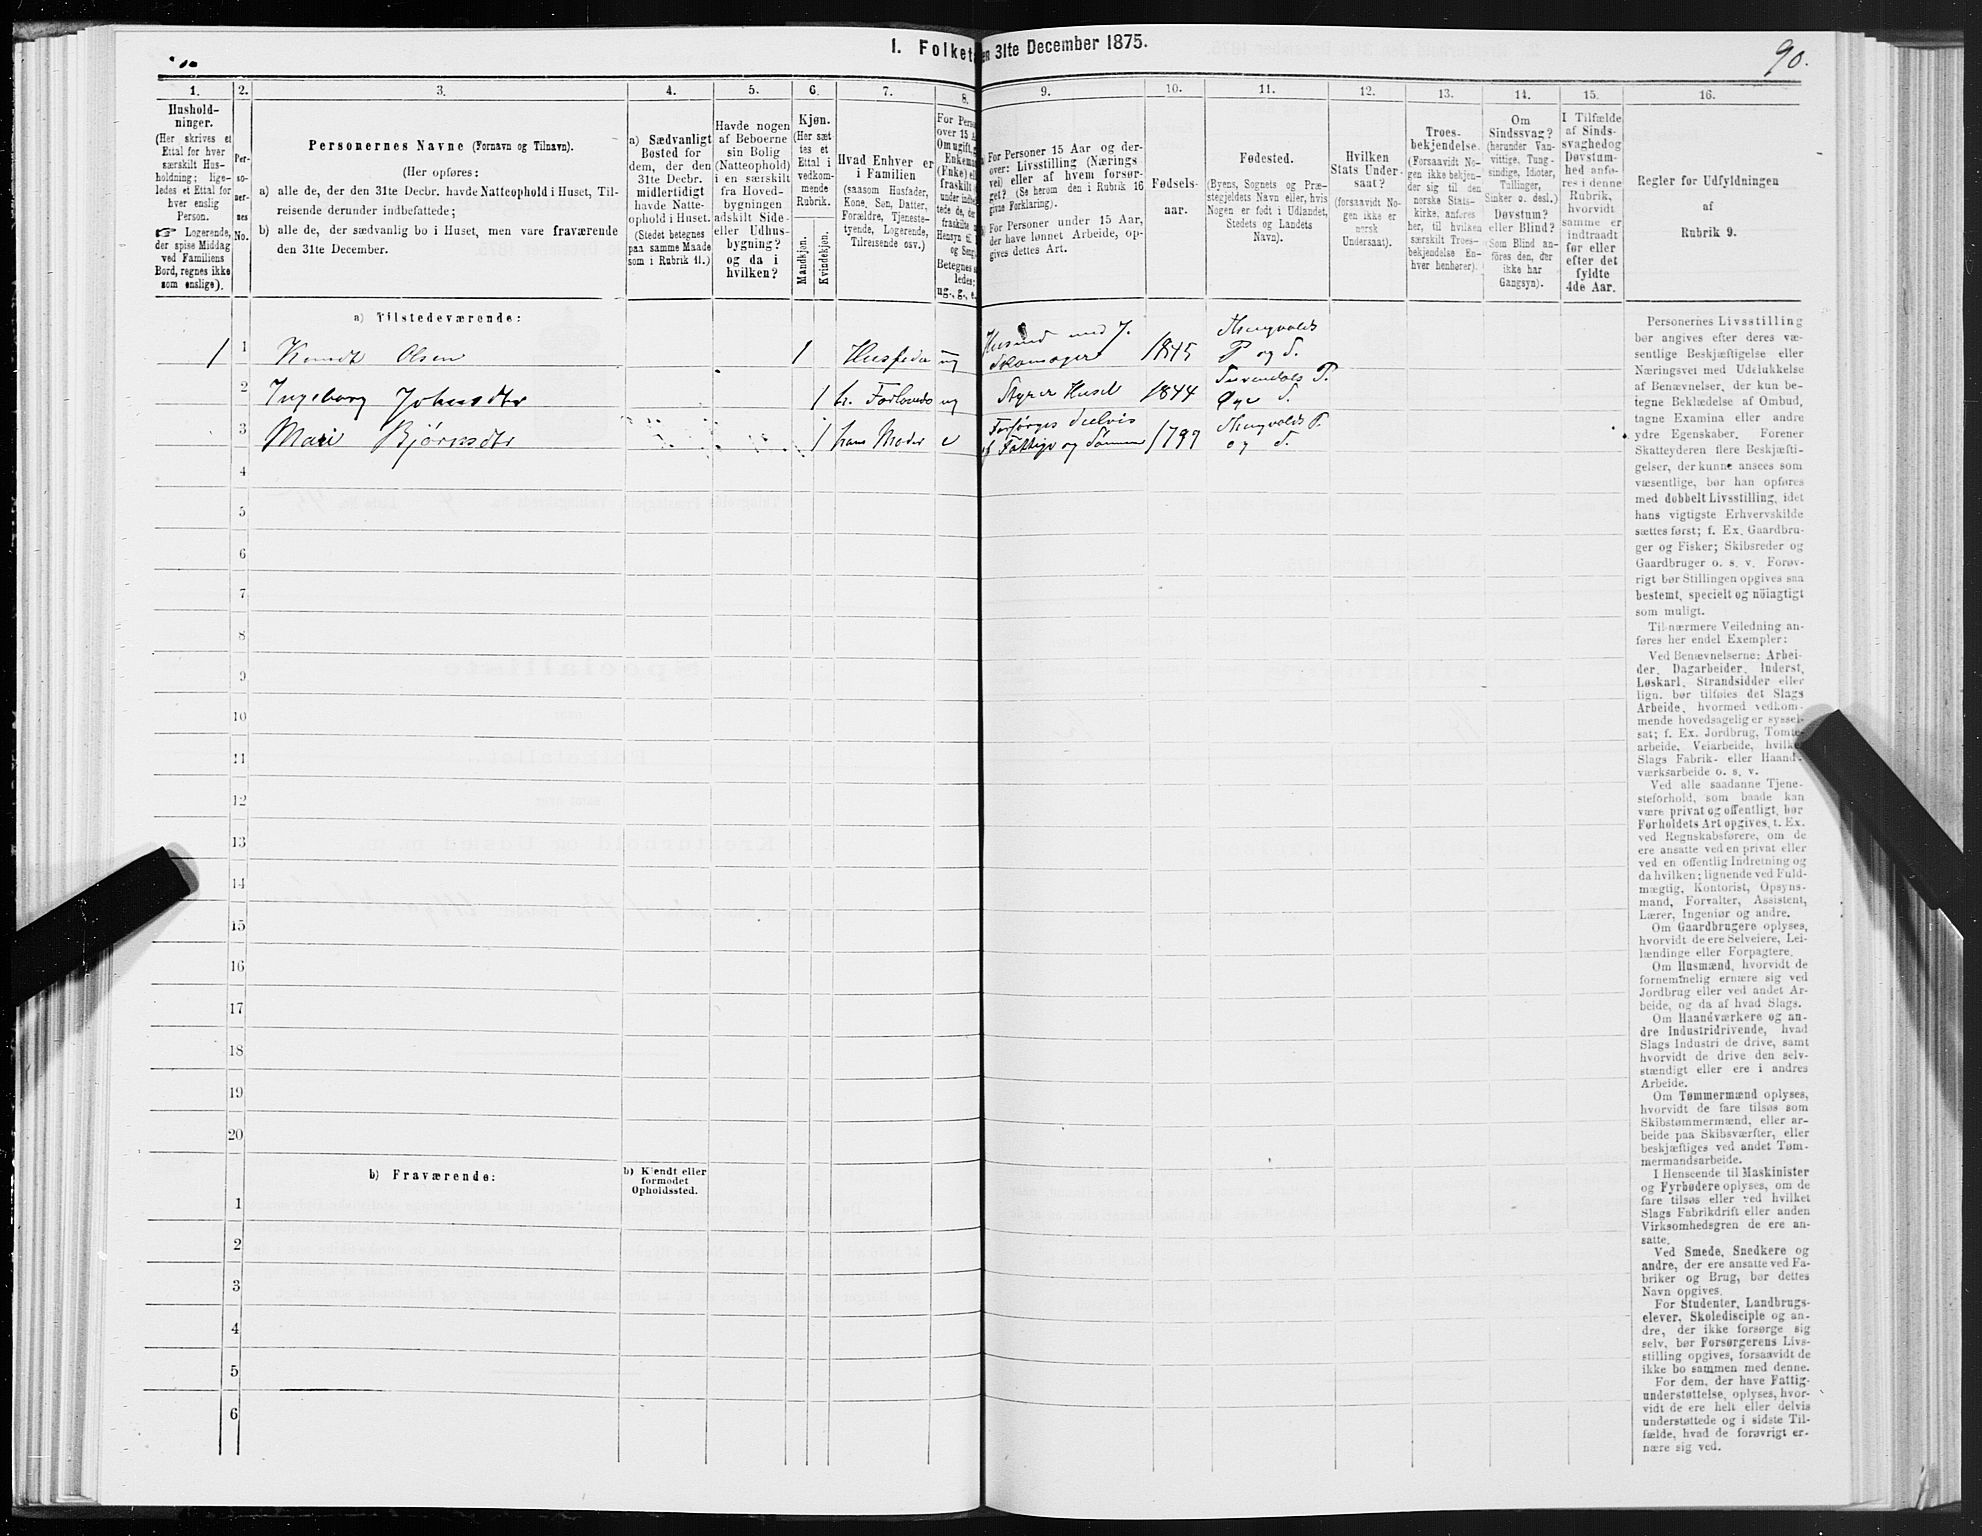 1. Folket en 31te December 1875.
90.
1.
2.
3.
4.
5.
6.
7.
8.
9.
10.
11.
12.
13.
14.
15.
16.
Hushold-
ninger.
(Her skrives et
Ettal for hver
særskilt Hus-
holdning; lige-
ledes et Ettal for
hver enslig
Person.
☞ Logerende,
der spise Middag
ved Familiens
Bord, regnes ikke
som enslige).
Per-
so-
ner-
nes
No.
Personernes Navne (Fornavn og Tilnavn).
(Her opføres:
a) alle de, der den 31te Decbr. havde Natteophold i Huset, Til-
reisende derunder indbefattede;
b) alle de, der sædvanlig bo i Huset, men vare fraværende
den 31te December.
a) Sædvanligt
Bosted for
dem, der den
31te Decbr.
midlertidigt
havde Natte-
ophold i Huset.
(Stedet betegnes
paa samme Maade
som i Rubrik 11.)
Havde nogen
af Beboerne
sin Bolig
(Natteophold)
i en særskilt
fra Hoved-
bygningen
adskilt Side-
eller Udhus-
bygning?
og da i
hvilken?
Kjøn.
(Her sæt
tes et
Ettal i
vedkom-
mende
Rubrik.
Mandkjøn.
Kvindekjøn.
Hvad Enhver er
i Familien
(saasom Husfader,
Kone, Søn, Datter,
Forældre, Tjeneste-
tyende, Logerende,
Tilreisende osv.)
For Perso
over 15 Aa
Om ugift, g
Enkema
(Enke) ell
fraskilt
under indbe
tede de, de
fraskilte
Hensyn til
og Seng
Betegnes s
ledes:
ug., g., e.
For Personer 15 Aar og der-
over: Livsstilling (Nærings
vei) eller af hvem forsør-
get? (Se herom den i Rubrik 16
givne Forklaring).
For Personer under 15 Aar,
der have lønnet Arbeide, op-
gives dettes Art.
Fødsels-
aar.
Fødested.
(Byens, Sognets og Præ-
stegjeldets Navn eller, hvis
Nogen er født i Udlandet,
Stedets og Landets
Navn).
Hvilken
Stats Under-
saat?
(forsaavidt No-
gen ikke er
norsk
Undersaat).
Troes-
bekjendelse.
(Forsaavidt No-
gen ikke bekjen-
der sig til den
norske Stats-
kirke, anføres
her, til hvilken
særskilt Troes-
bekjendelse En-
hver henhører).
Om
Sindssvag?
(herunder Van-
vittige, Tung-
sindige, Idioter,
Tullinger,
Sinker o. desl.)
Døvstum?
eller Blind?
(Som Blind an-
føres den, der
ikke har
Gangsyn).
I Tilfælde
af Sinds-
svaghed og
Døvstum-
hed anfø-
res i denne
Rubrik,
hvorvidt
samme er
indtraadt
før eller
efter det
fyldte
4de Aar.
Regler for Udfyldningen
af
Rubrik 9.
a) Tilstedeværende:
1 1 Knudt Olsen 1 Husfader ug Husmd med J. Skomager 1845 Thingvolds P og S.
2 Ingeborg Johnsdtr 1 h. Forlovede ug Styrer Huset 1844 Surendals P. Øye S.
3 Mari Bjørnsdtr 1 hans Moder e Forsørges deelvis af Fattigv og Sønnen 1799 Thingvolds P. og S.
4
5
6
7
8
9
10
11
12
13
14
15
16
17
18
19
20
b) Fraværende:
b) Kjendt eller
formodet
Opholdssted.
1
2
3
4
5
6
Personernes Livsstilling
bør angives efter deres væ-
sentlige Beskjæftigelse eller
Næringsvei med Udelukkelse
af Benævnelser, der kun be-
tegne Beklædelse af Ombud,
tagne Examina eller andre
ydre Egenskaber. Forener
Skatteyderen flere Beskjæfti-
gelser, der kunne ansees som
væsentlige, bør han opføres
med dobbelt Livsstilling, idet
hans vigtigste Erhvervskilde
sættes først; f. Ex. Gaardbru-
ger og Fisker; Skibsreder og
Gaardbruger o. s. v. Forøv-
rigt bør Stillingen opgives saa
bestemt, specielt og nöiagtigt
som muligt.
Til nærmere Veiledning an-
føres her endel Exempler:
Ved Benævnelserne: Arbei-
der, Dagarbeider, Inderst,
Løskarl, Strandsidder eller
lign. bør tilføies det Slags
Arbeide, hvormed vedkom-
mende hovedsagelig er syssel-
sat; f. Ex. Jordbrug, Tomte-
arbeide, Veiarbeide, hvilket
Slags Fabrik- eller Haand-
værksarbeide o. s. v.
Ved alle saadanne Tjene-
steforhold, som baade kan
være privat og offentligt, bør
Forholdets Art opgives, t. Ex.
ved Regnskabsførere, om de
ere ansatte ved en privat eller
ved en offentlig Indretning og
da hvilken; lignende ved Fuld-
mægtig, Kontorist, Opsyns-
mand, Forvalter, Assistent,
Lærer, Ingeniør og andre.
Om Gaardbrugere oplyses,
hvorvidt de ere Selveiere, Lei-
lændinge eller Forpagtere.
Om Husmænd, hvorvidt de
fornemmelig ernære sig ved
Jordbrug eller ved andet Ar-
beide, og da af hvad Slags.
Om Haandværkere og an-
dre Industridrivende, hvad
Slags Industri de drive, samt
hvorvidt de drive den selv-
stændigt eller ere i andres
Arbeide.
Om Tømmermænd oplyses,
hvorvidt de fare tilsøs som
Skibstømmermænd, eller ar-
beide paa Skibsværfter, eller
beskjæftiges ved andet Tøm-
mermandsarbeide.
I Henseende til Maskinister
og Fyrbødere oplyses, om de
fare tilsøs eller ved hvilket
Slags Fabrikdrift eller anden
Virksomhedsgren de ere an-
satte.
Ved Smede, Snedkere og
andre, der ere ansatte ved Fa-
briker og Brug, bør dettes
Navn opgives.
For Studenter, Landbrugs-
elever, Skoledisciple og an-
dre, der ikke forsørge sig
selv, bør Forsørgerens Livs-
stilling opgives, forsaavidt de
ikke bo sammen med denne.
For dem, der have Fattig-
understøttelse, oplyses, hvor-
vidt de ere helt eller delvis
understøttede og i sidste Til-
fælde, hvad de forøvrigt er-
nære sig ved.